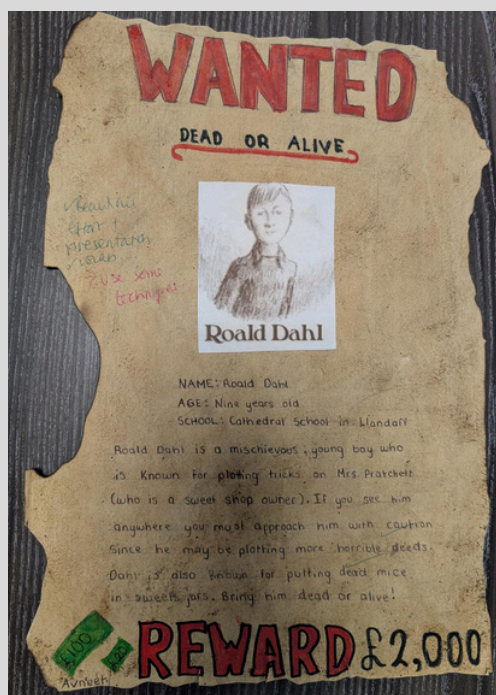 WANTED
DEAD OR ALIVE
Beautiful
effort +
presentation
? Use some
techniques
Roald Dahl
NAME: Roald Dahl
AGE: Nine years old
SCHOOL: Cathedral School in Llandaff
Roald Dahl is a mischievous, young boy who
is known for plotting tricks on Mrs Pratchett
(who is a sweet shop owner). If you see him
anywhere you must approach him with caution
since he may be plotting more horrible deeds.
Dahl is also known for putting dead mice
in sweets jars. Bring him dead or alive!
£100
REWARD £2,000
Avneet